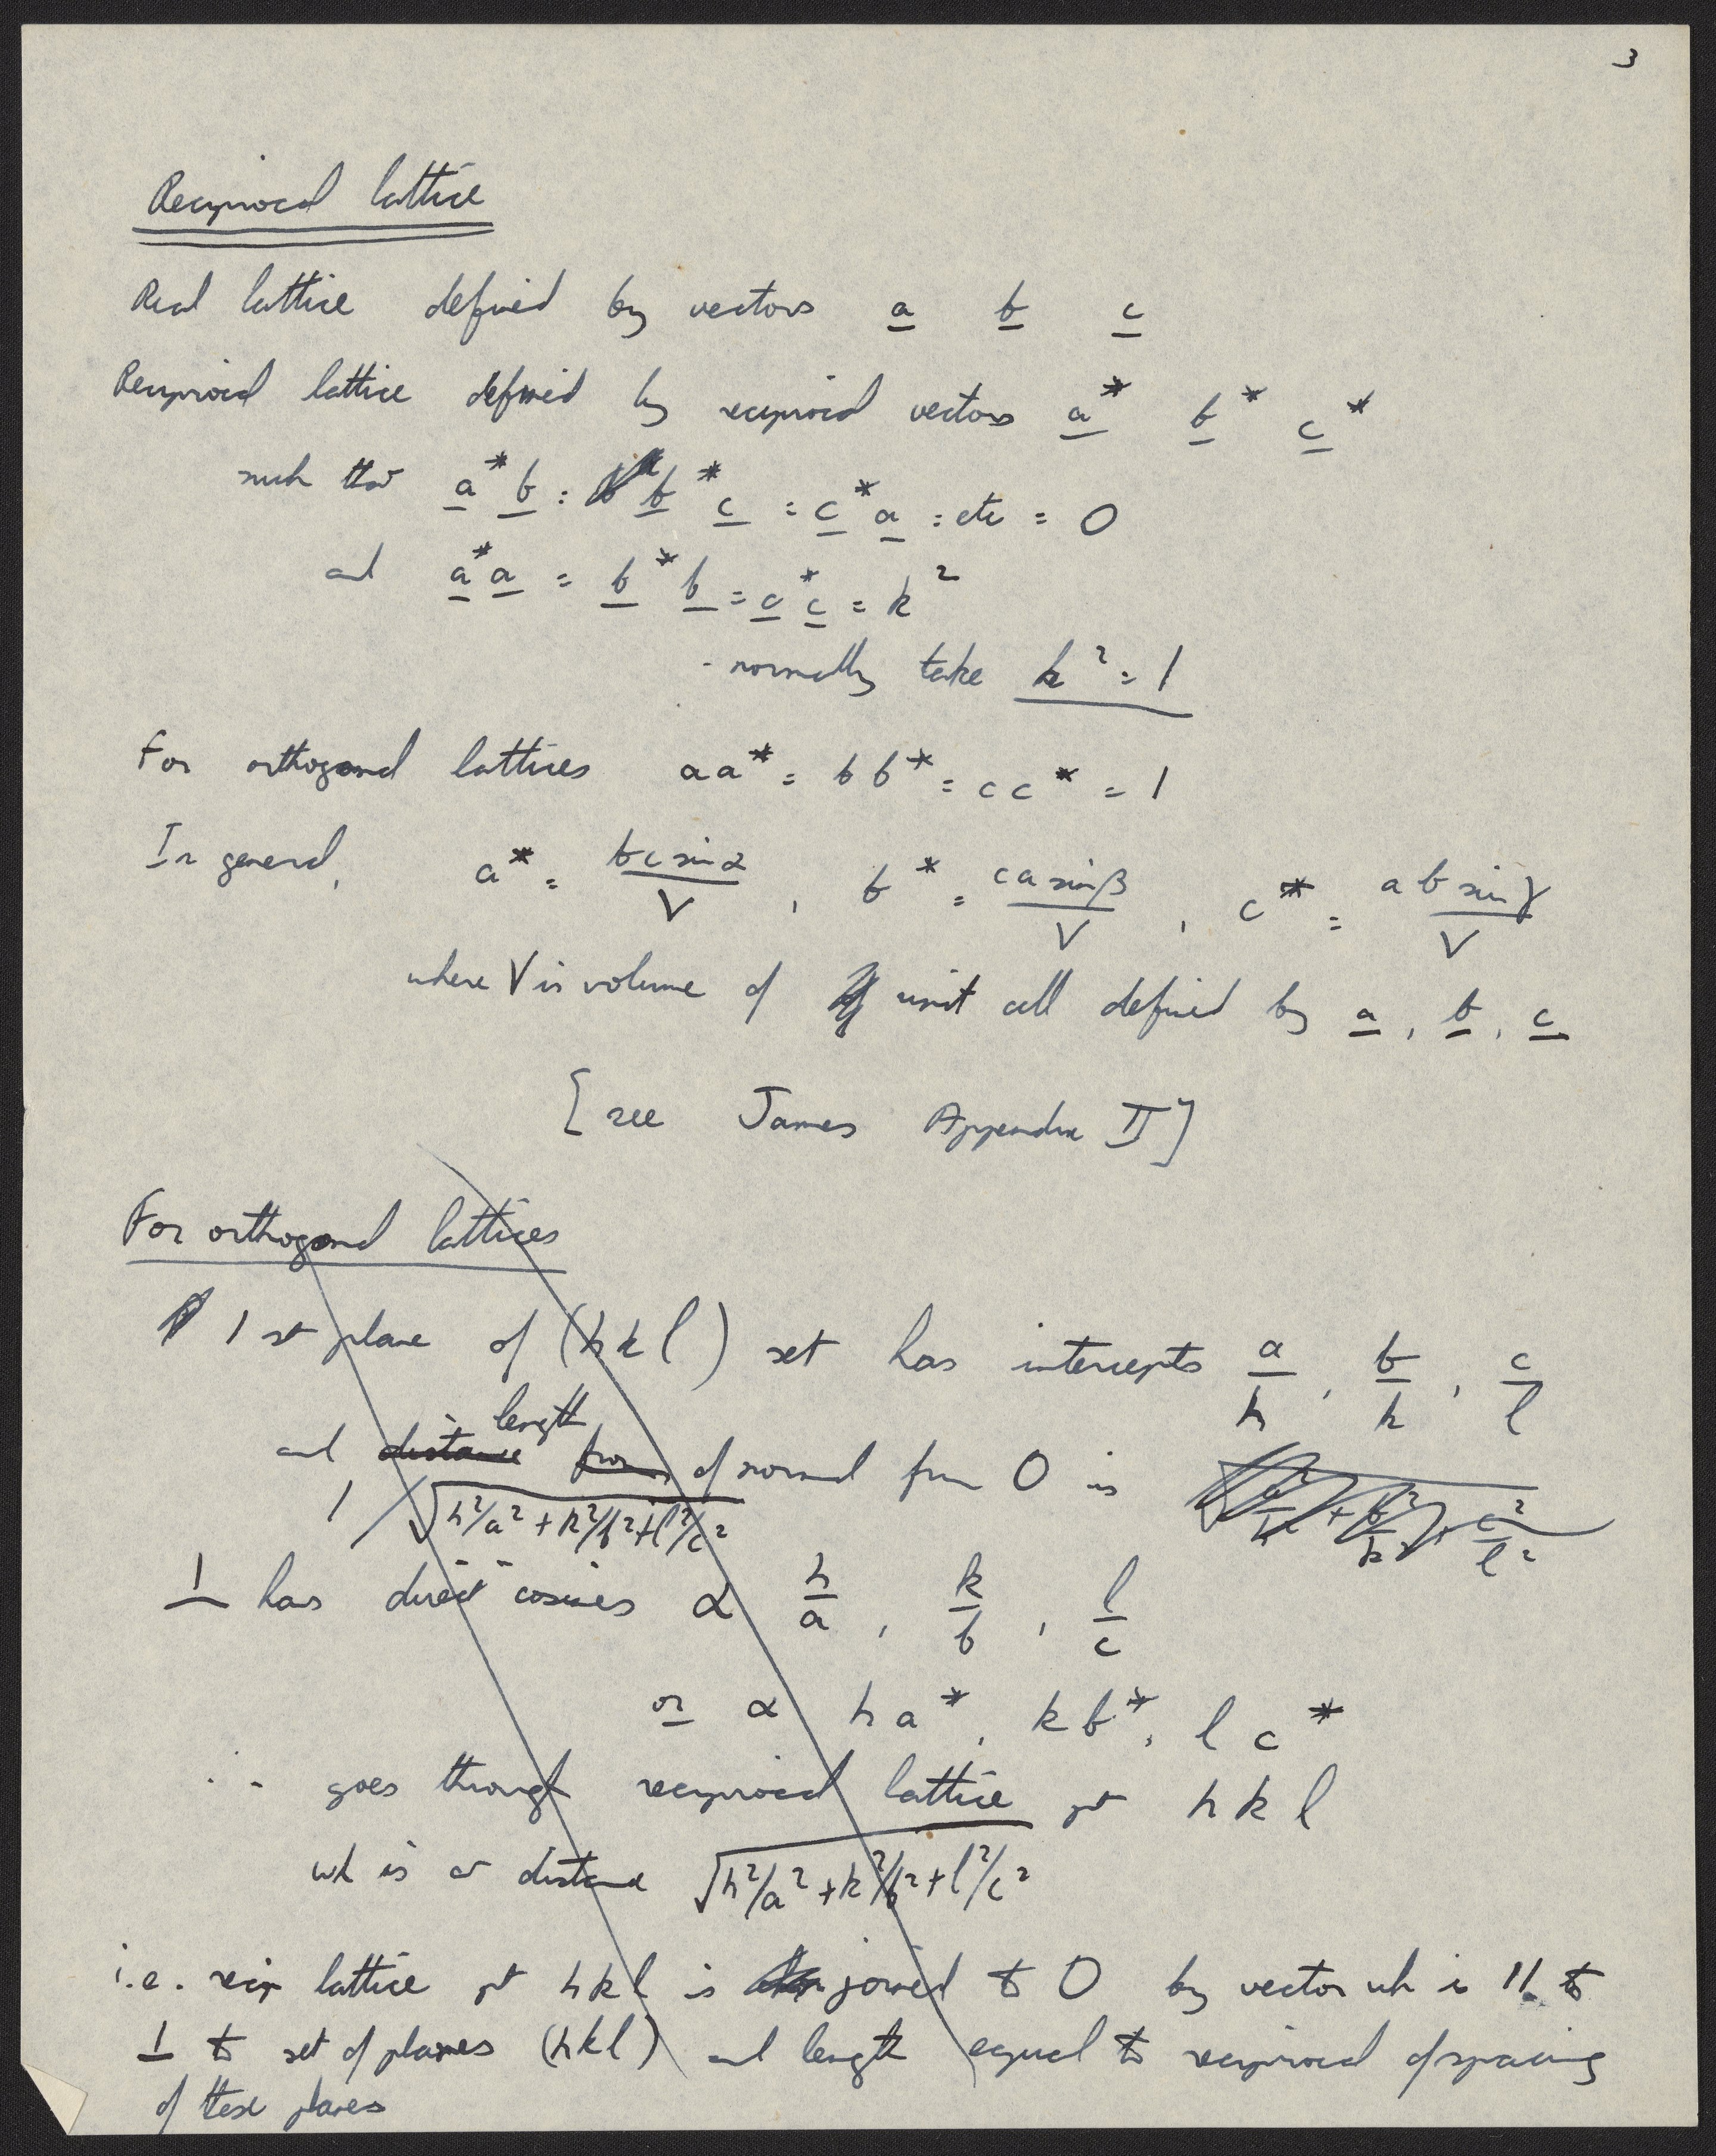 3
Reciprocal lattice
Real lattice defined by vectors a b c
Reciprocal lattice defined by reciprocal vectors a* b* c*
such that a* b = b* c = c* a = etc = 0
and a* a = b* b = c* c = k²
- normally take k² = 1
For orthogonal lattices aa* = bb* = cc* = 1
In general, a* = bc sin α / V , b* = ca sin β / V , c* = ab sin γ / V
where V is volume of unit cell defined by a, b, c
[see James Appendix II]
For orthogonal lattices
1st plane of (hkl) set has intercepts a/h , b/k , c/l
length
and distance from of normal from O is
1/√h²/a² + k²/b² + l²/c²
⊥ has direct cosines ∝ h/a , k/b , l/c
or ∝ ha*, kb*, lc*
∴ goes through reciprocal lattice pt hkl
wh is at distance √h²/a² + k²/b² + l²/c²
i.e. recip lattice pt hkl is joined to O by vector wh is || to
⊥ to set of planes (hkl) and length equal to reciprocal of spacing
of these planes